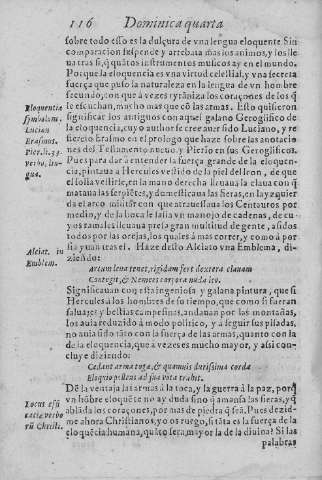 116 Dominica quarta
sobre todo esto es la dulçura de vna lengua eloquente Sin
comparacion suspende y arrebata mas los animos, y los lle
ua tras si, q̃ quãtos instrumentos musicos ay en el mundo.
Porque la eloquencia es vna virtud celestial, y vna secreta
fuerça que puso la naturaleza en la lengua de vn hombre
fecundo, con que à vezes tyrãniza los coraçones de los q̃
le escuchan, mucho mas que cõ las armas. Esto quisieron
significar los antiguos con aquel galano Geroglifico de
la eloquencia, cuyo author se cree auer sido Luciano, y re
fierelo Erasmo en el prologo que haze sobre las anotacio
nes del Testamento nueuo y Pierio en sus Geroglificos.
Pues para dar à entender la fuerça grande de la eloquen-
cia, pintaua à Hercules vestido de la piel del leon, de que
el solia vestirse, en la mano derecha lleuaua la claua con q̃
mataua las serpiẽtes, y domesticaua las fieras, en la yzquier
da el arco militar con que atrauessaua los Centauros por
medio, y de la boca le salia vn manojo de cadenas, de cu-
yos ramales lleuaua presa gran multitud de gente, asidos
todos por las orejas, los quales à mas correr, y como à por
sia yuan tras el. Haze desto Alciato vna Emblema, di-
ziendo:
Arcum leua tenet, rigidam fert dextera clauam
Contegit, & Nemees corpora nuda leo.
Significauan con esta ingeniosa y galana pintura, que si
Hercules à los hombres de su tiempo, que como si fueran
saluajes y bestias campesinas, andauan por las montañas,
los auia reduzido à modo politico, y à seguir sus pisadas,
no auia sido tãto con la fuerça de las armas, quanto con la
de la eloquencia, que à vezes es mucho mayor, y assi con-
cluye diziendo:
Cedant arma togæ, & quamuis durissima corda
Eloquio pollens ad sua vota trahit.
De la ventaja las armas à la toca, y la guerra à la paz, porq̃
vn hõbre eloquẽte no ay duda sino q̃ amansa las fieras, y q̃
ablãda los coraçones, por mas de piedra q̃ seã. Pues dezid
me ahora Christianos, yo os ruego, si tãta es la fuerça de la
eloquẽcia humana, quãto sera, mayor la de la diuina? Si las
palabras
Eloquentiæ
symbolum.
Lucian
Erasmus.
Pier. li. 33
verbo, lin-
gua.
Alciat. in
Emblem.
Locus effi
caciæ verbo
rũ Christi.